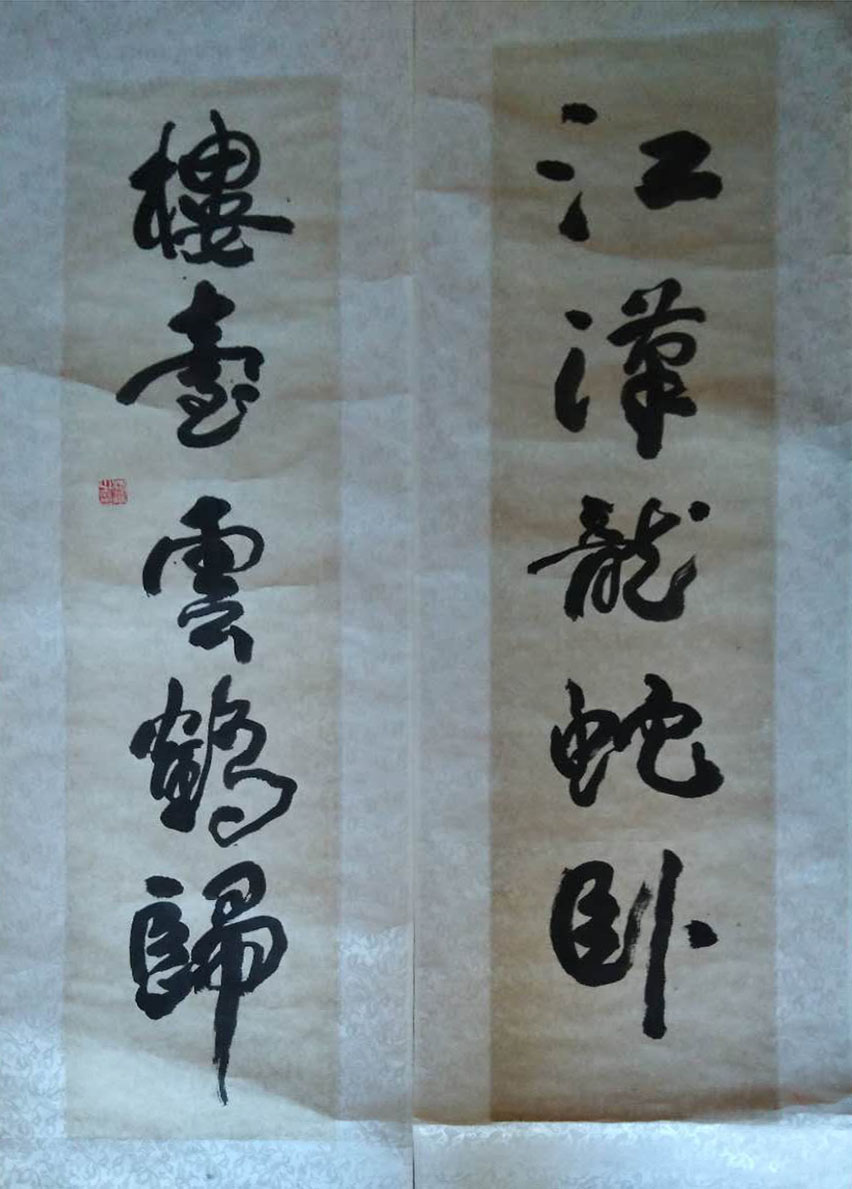 江漢龍蛇卧
樓臺雲鶴歸